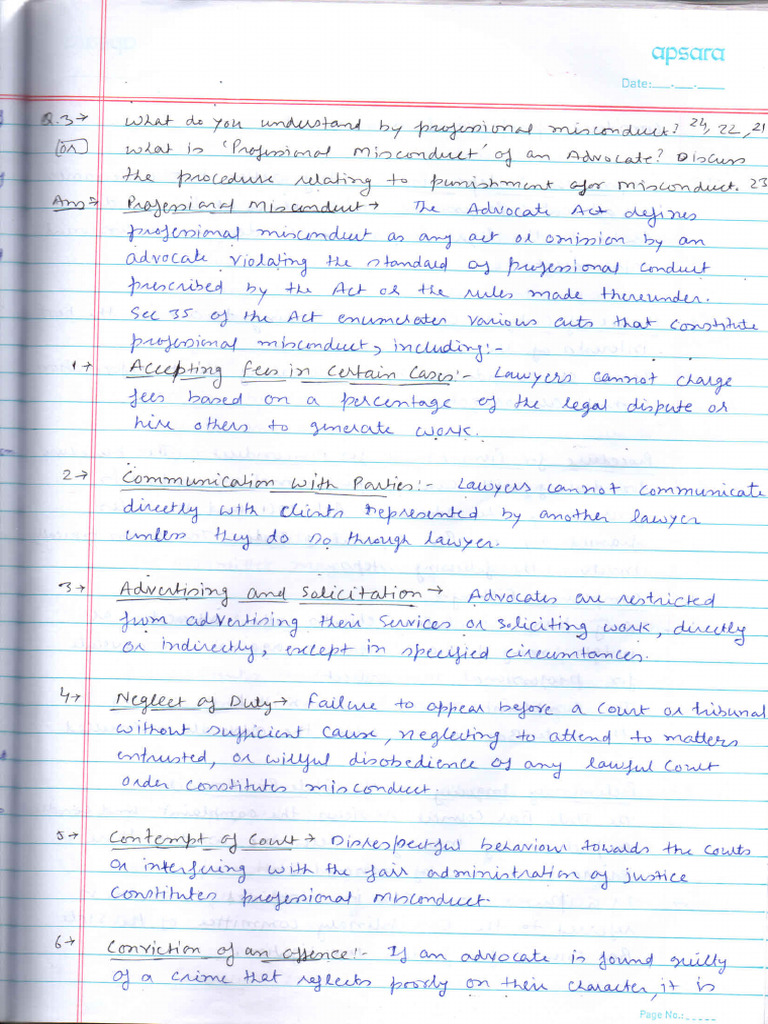 apsara
Date:__.__.____
Q.3→ What do you understand by professional misconduct? 24, 22, 21
(or) What is 'Professional Misconduct' of an Advocate? Discuss
the procedure relating to punishment for misconduct. 23
Ans⇒ Professional Misconduct→ The Advocate Act defines
professional misconduct as any act or omission by an
advocate violating the standard of professional conduct
prescribed by the Act or the rules made thereunder.
Sec 35 of the Act enumerates various acts that constitute
professional misconduct, including:-
1→ Accepting fees in Certain Cases:- Lawyers cannot charge
fees based on a percentage of the legal dispute or
hire others to generate work.
2→ Communication with Parties:- Lawyers cannot communicate
directly with clients represented by another lawyer
unless they do so through lawyer.
3→ Advertising and Solicitation→ Advocates are restricted
from advertising their services or soliciting work, directly
or indirectly, except in specified circumtances.
4→ Neglect of Duty→ Failure to appear before a Court or tribunal
without sufficient cause, neglecting to attend to matters
entrusted, or willful disobedience of any lawful Court
order constitutes misconduct.
5→ Contempt of Court→ Disrespectful behaviour towards the courts
or interfering with the fair administration of justice
constitutes professional misconduct.
6→ Conviction of an offence:- If an advocate is found guilly
of a crime that reflects poorly on their character, it is
Page No.:_____